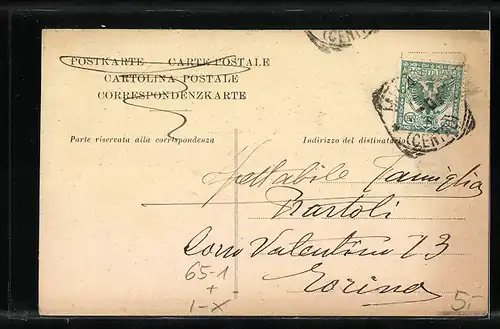 (CEN)
POSTKARTE CARTE POSTALE
CARTOLINA POSTALE
CORRESPONDENZKARTE
Parte riservata alla corrispondenza
Indirizzo del distinatario
(CEN
Spettabile Famiglia
Bartoli
Corso Valentino 73
Torino
65-1
+
1-X
5.-